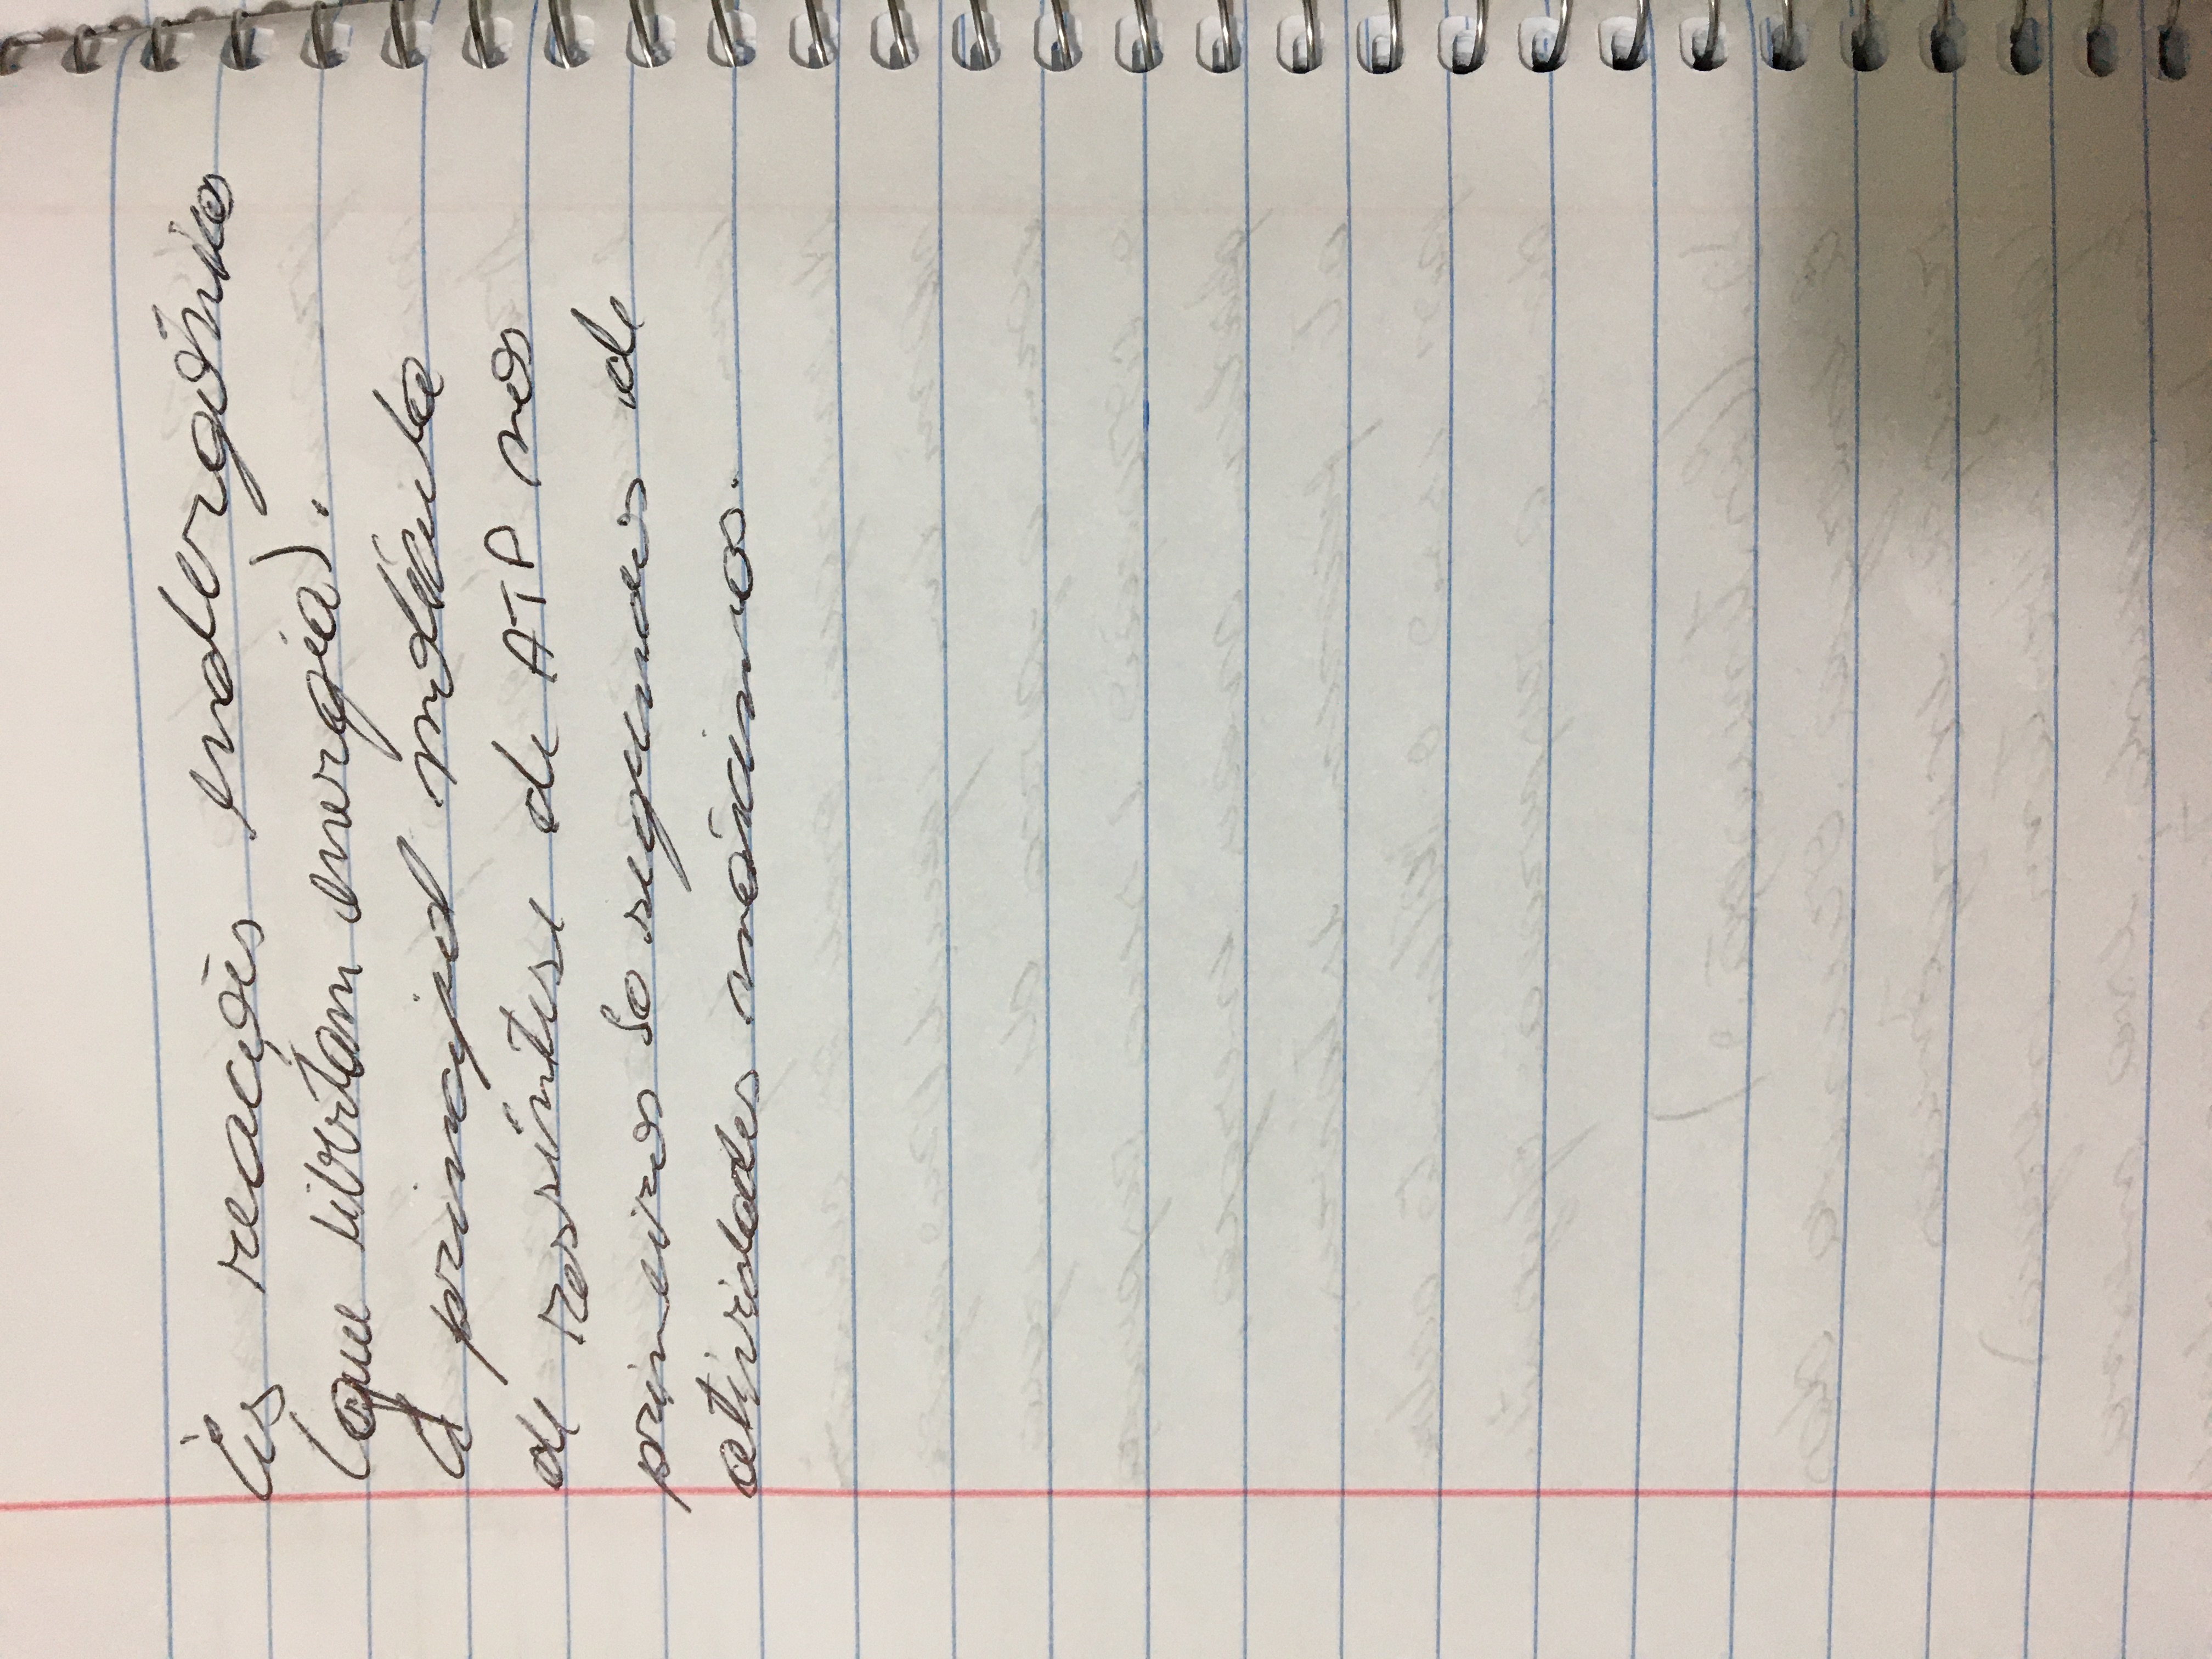 às reações endergônicas
(que libertam energia).
É principal molécula
de ressíntese de ATP nos
primeiros segundos de
atividades máximas.